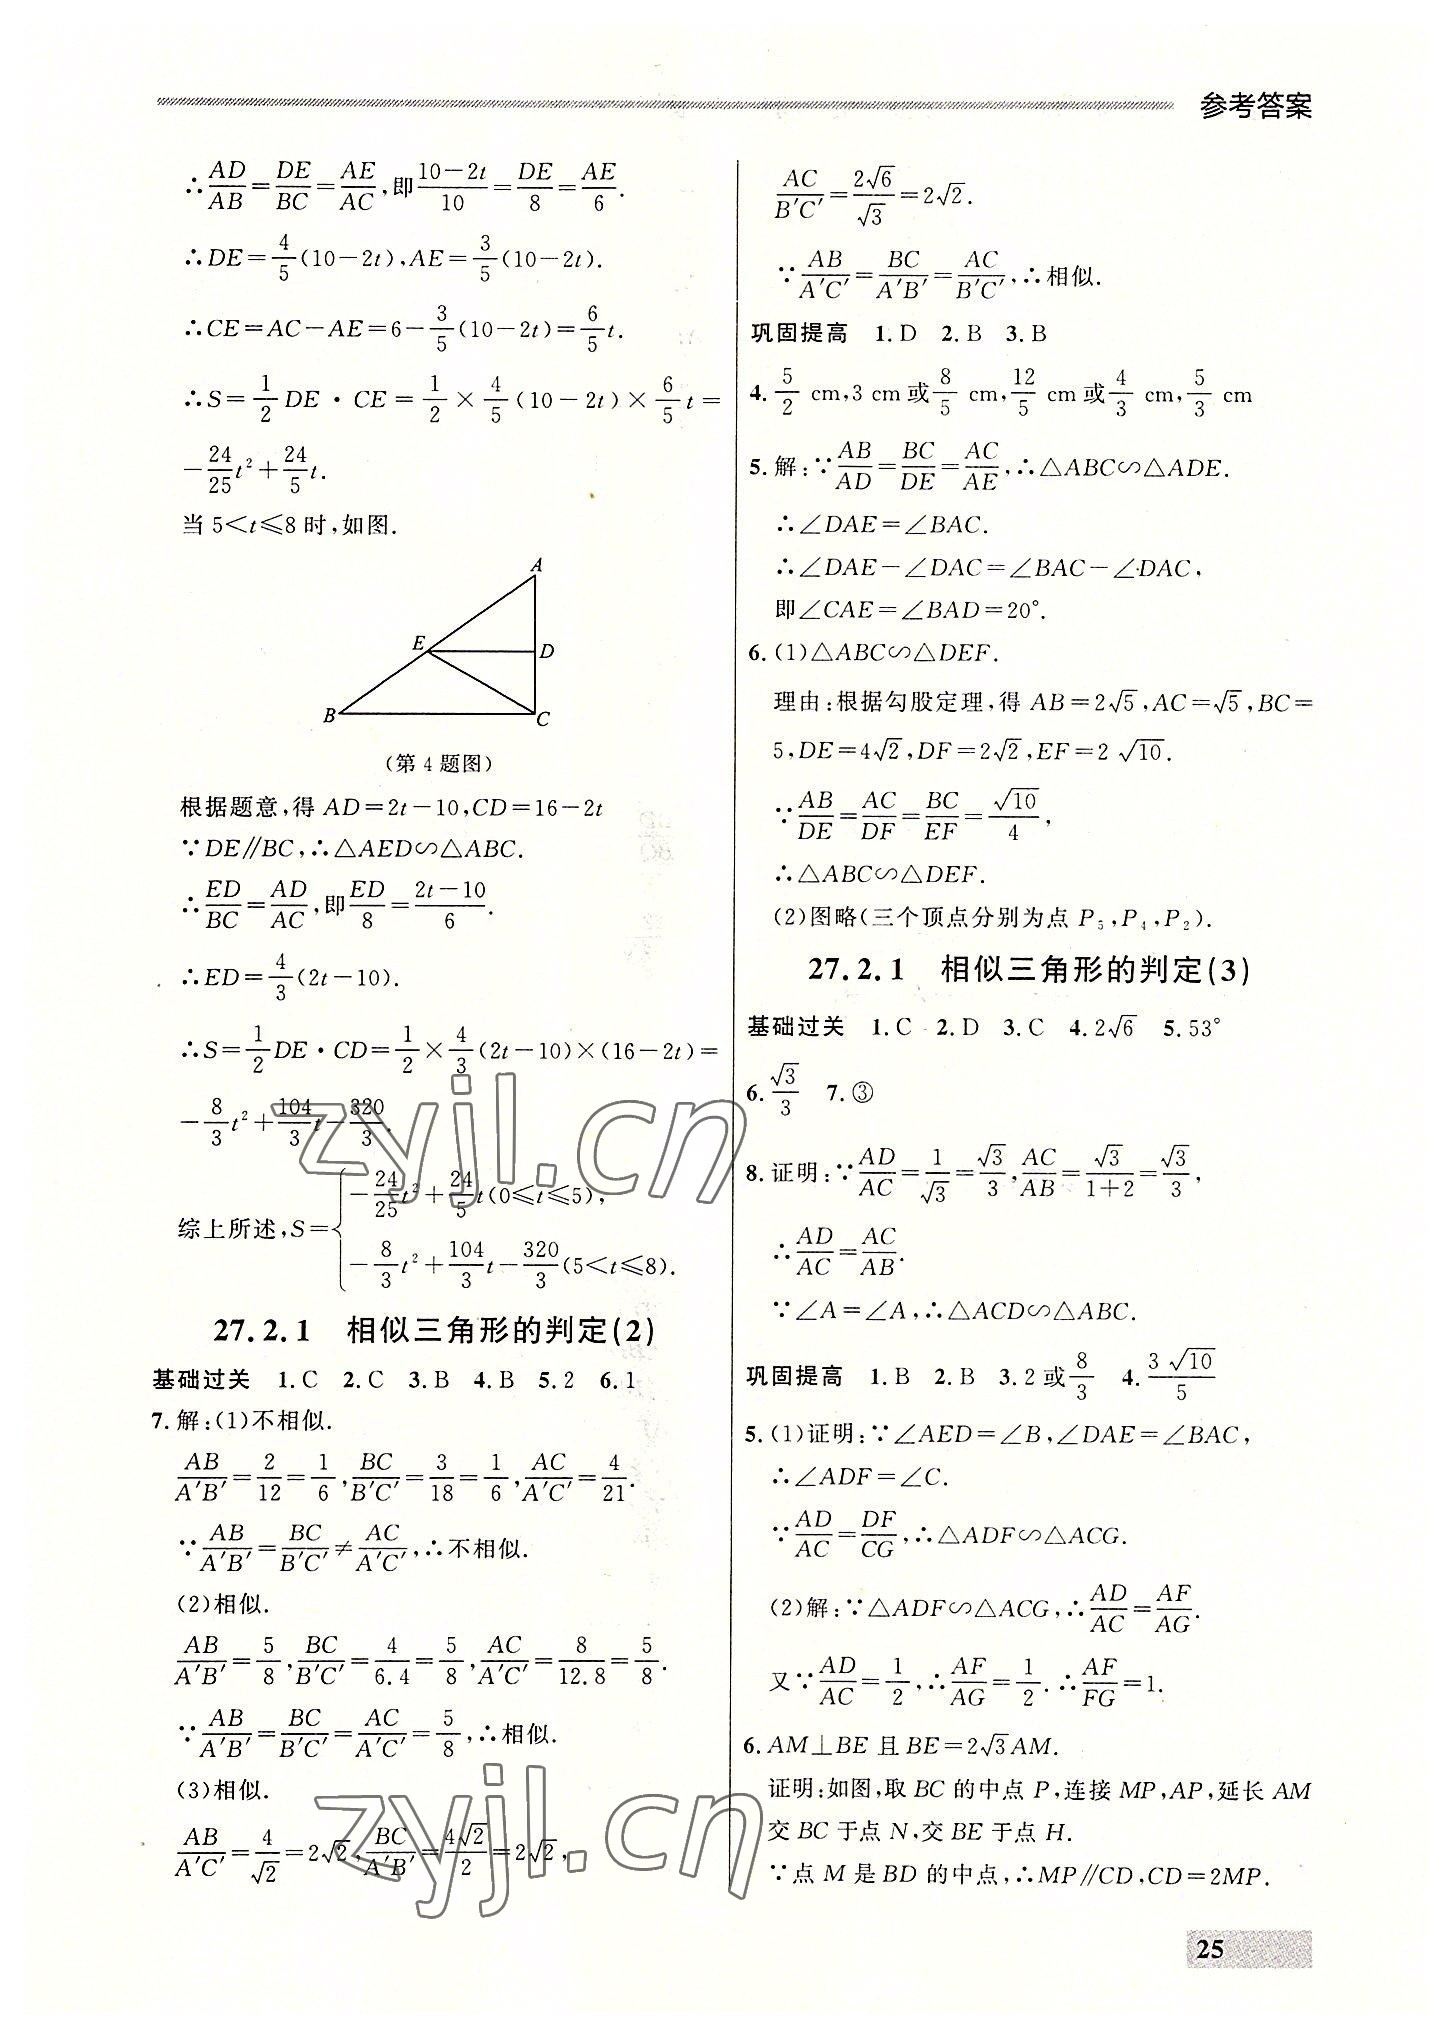 参考答案
∴AD/AB=DE/BC=AE/AC,即(10-2t)/10=DE/8=AE/6.
∴DE=4/5(10-2t),AE=3/5(10-2t).
∴CE=AC-AE=6-3/5(10-2t)=6/5t.
∴S=1/2DE·CE=1/2×4/5(10-2t)×6/5t=
-24/25t²+24/5t.
当5<t≤8时,如图.
A
E
D
B
C
(第4题图)
根据题意,得AD=2t-10,CD=16-2t
∵DE∥BC,∴△AED∽△ABC.
∴ED/BC=AD/AC,即ED/8=(2t-10)/6.
∴ED=4/3(2t-10).
∴S=1/2DE·CD=1/2×4/3(2t-10)×(16-2t)=
-8/3t²+104/3t-320/3.
综上所述,S={-24/25t²+24/5t(0≤t≤5),
-8/3t²+104/3t-320/3(5<t≤8).
27.2.1 相似三角形的判定(2)
基础过关 1.C 2.C 3.B 4.B 5.2 6.1
7.解:(1)不相似.
AB/A'B'=2/12=1/6,BC/B'C'=3/18=1/6,AC/A'C'=4/21.
∵AB/A'B'=BC/B'C'≠AC/A'C',∴不相似.
(2)相似.
AB/A'B'=5/8,BC/B'C'=4/6.4=5/8,AC/A'C'=8/12.8=5/8.
∵AB/A'B'=BC/B'C'=AC/A'C'=5/8,∴相似.
(3)相似.
AB/A'C'=4/√2=2√2,BC/A'B'=4√2/2=2√2,
AC/B'C'=2√6/√3=2√2.
∵AB/A'C'=BC/A'B'=AC/B'C',∴相似.
巩固提高 1.D 2.B 3.B
4.5/2 cm,3 cm或8/5 cm,12/5 cm或4/3 cm,5/3 cm
5.解:∵AB/AD=BC/DE=AC/AE,∴△ABC∽△ADE.
∴∠DAE=∠BAC.
∴∠DAE-∠DAC=∠BAC-∠DAC,
即∠CAE=∠BAD=20°.
6.(1)△ABC∽△DEF.
理由:根据勾股定理,得AB=2√5,AC=√5,BC=
5,DE=4√2,DF=2√2,EF=2√10.
∵AB/DE=AC/DF=BC/EF=√10/4,
∴△ABC∽△DEF.
(2)图略(三个顶点分别为点P₅,P₄,P₂).
27.2.1 相似三角形的判定(3)
基础过关 1.C 2.D 3.C 4.2√6 5.53°
6.√3/3 7.③
8.证明:∵AD/AC=1/√3=√3/3,AC/AB=√3/(1+2)=√3/3,
∴AD/AC=AC/AB.
∵∠A=∠A,∴△ACD∽△ABC.
巩固提高 1.B 2.B 3.2或8/3 4.3√10/5
5.(1)证明:∵∠AED=∠B,∠DAE=∠BAC,
∴∠ADF=∠C.
∵AD/AC=DF/CG,∴△ADF∽△ACG.
(2)解:∵△ADF∽△ACG,∴AD/AC=AF/AG.
又∵AD/AC=1/2,∴AF/AG=1/2.∴AF/FG=1.
6.AM⊥BE且BE=2√3AM.
证明:如图,取BC的中点P,连接MP,AP,延长AM
交BC于点N,交BE于点H.
∵点M是BD的中点,∴MP∥CD,CD=2MP.
25
zyjl.cn
zyjl.cn